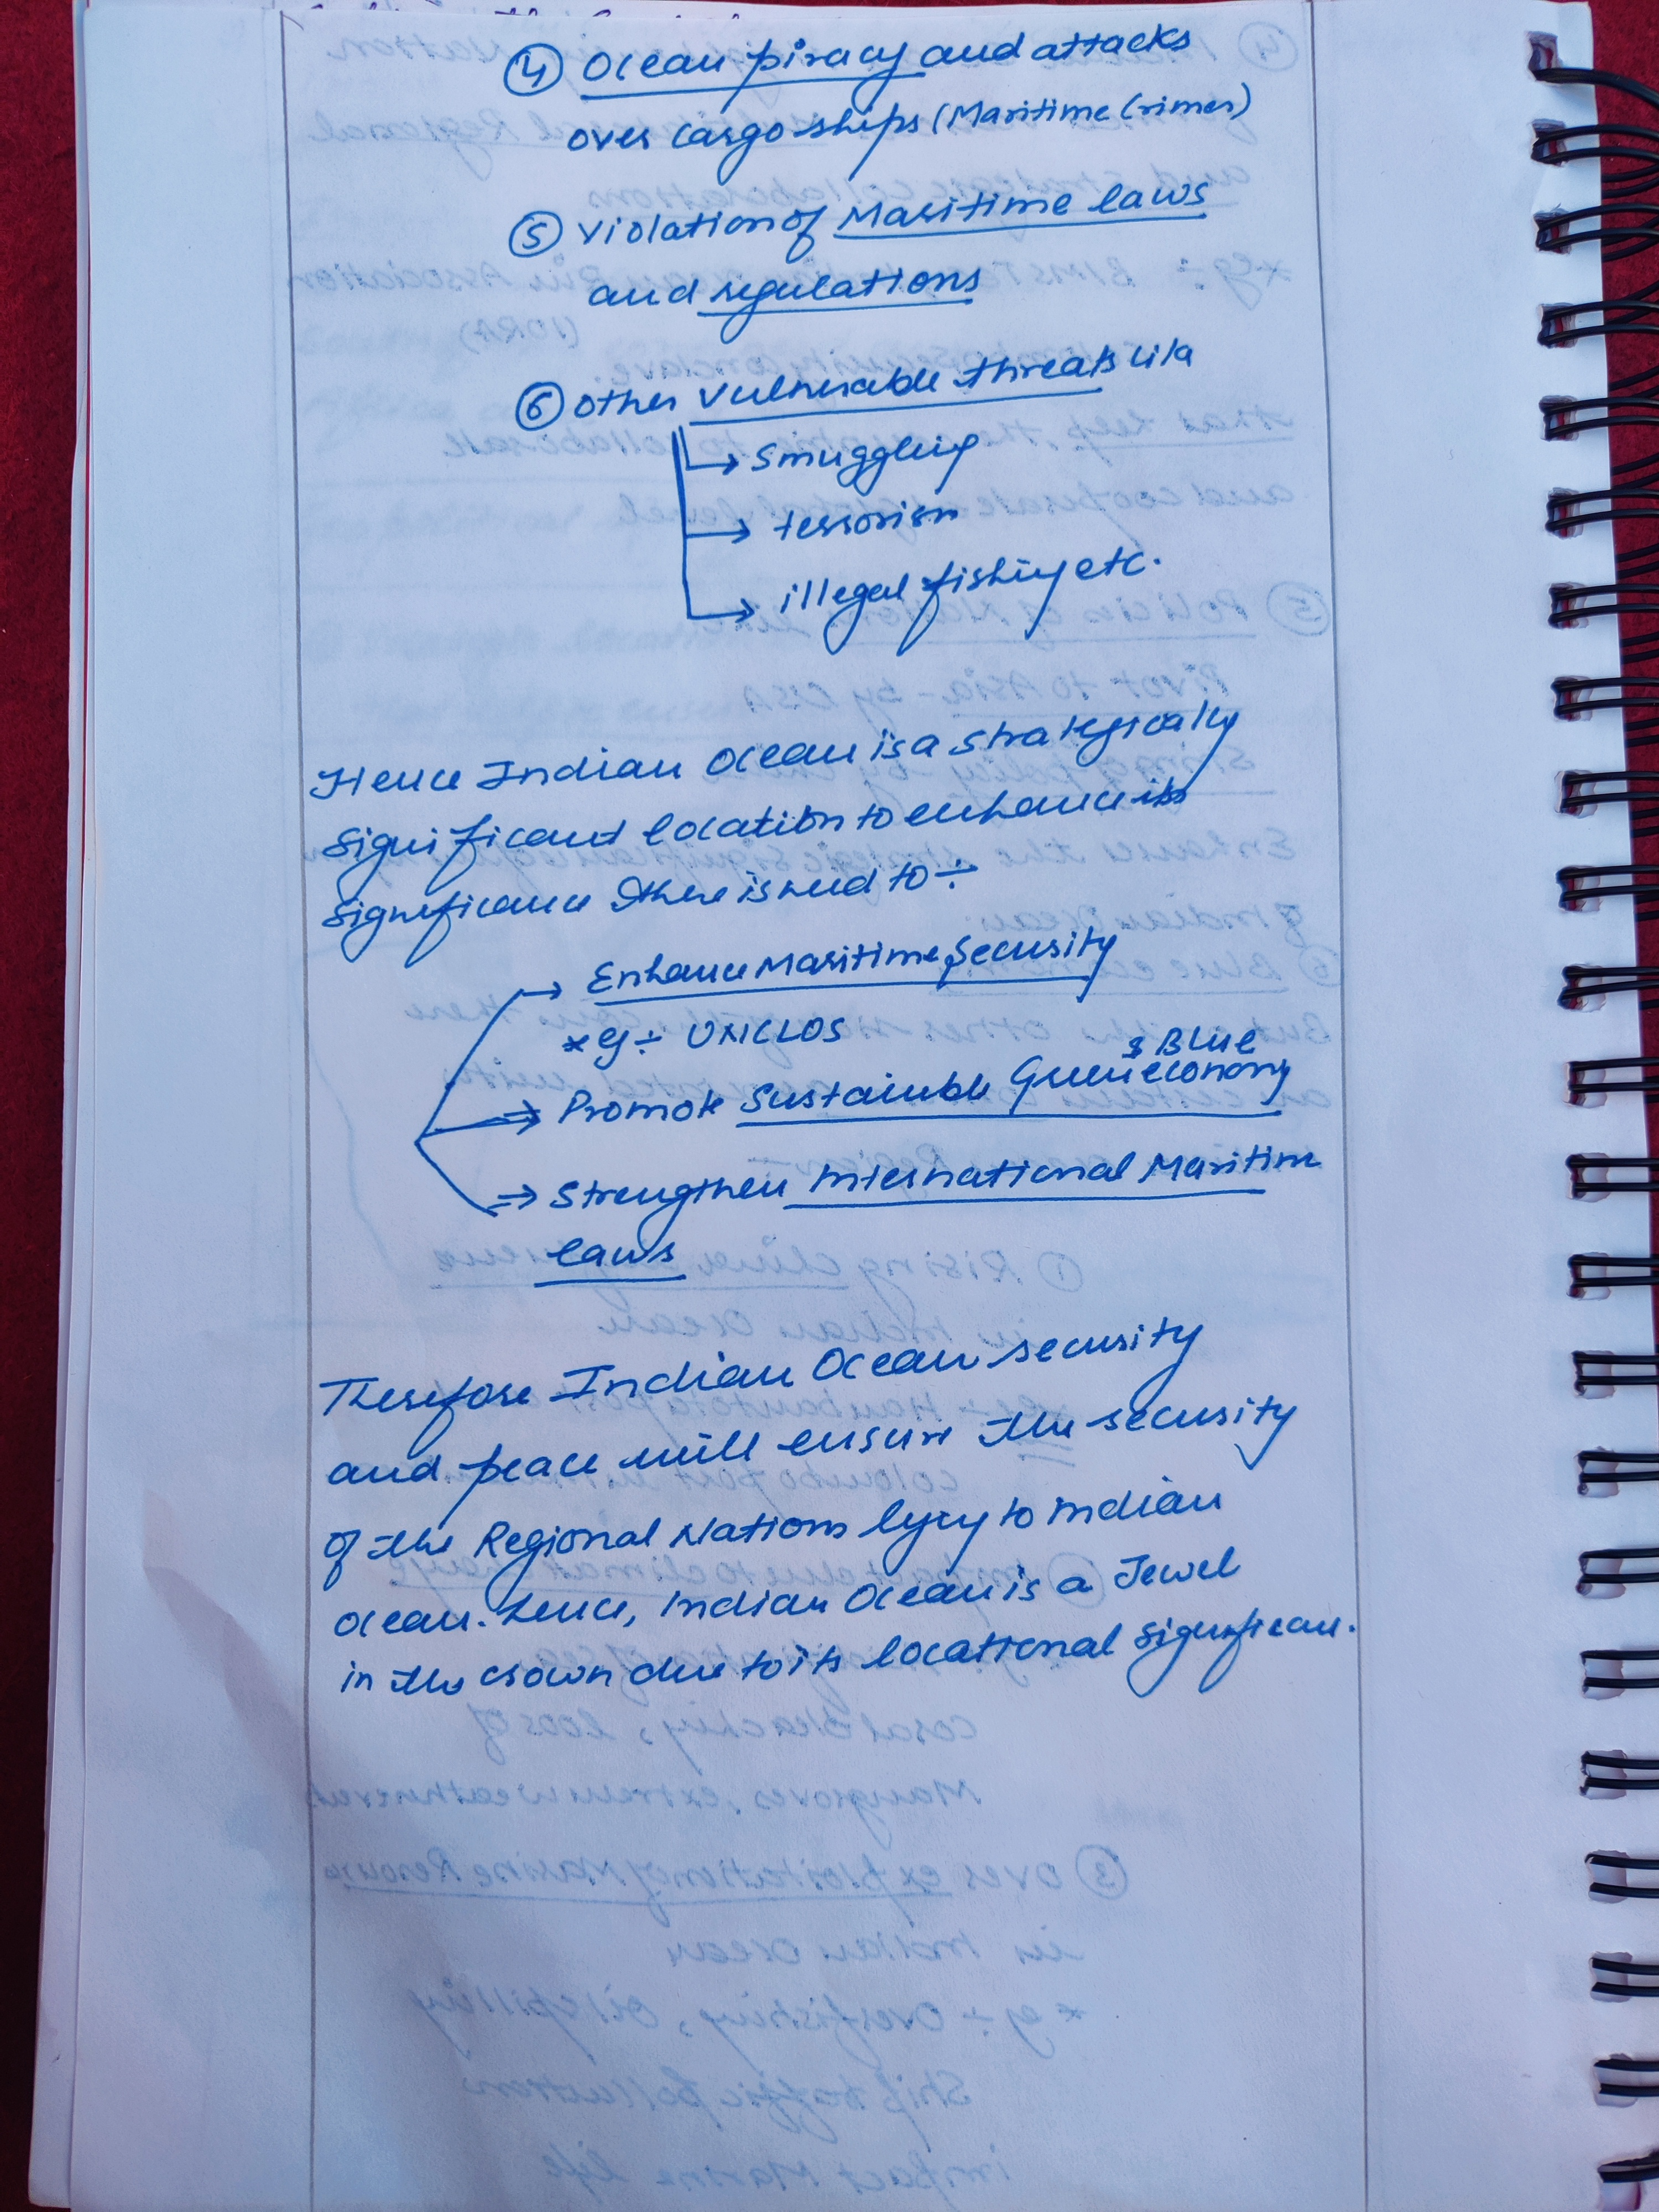 ④ Ocean piracy and attacks
over cargo ships (Maritime Crimes)
⑤ Violation of Maritime laws
and regulations
⑥ Other vulnerable threats like
→ Smuggling
→ terrorism
→ illegal fishing etc.
Hence Indian Ocean is a strategically
significant location to enhance its
significance there is need to ÷
→ Enhance Maritime Security
* eg ÷ UNCLOS
& Blue
⇒ Promote Sustainable Green economy
⇒ Strengthen International Maritime
laws
Therefore Indian Ocean security
and peace will ensure the security
of the Regional Nations lying to Indian
Ocean. Hence, Indian Ocean is a Jewel
in the crown due to its locational significance.